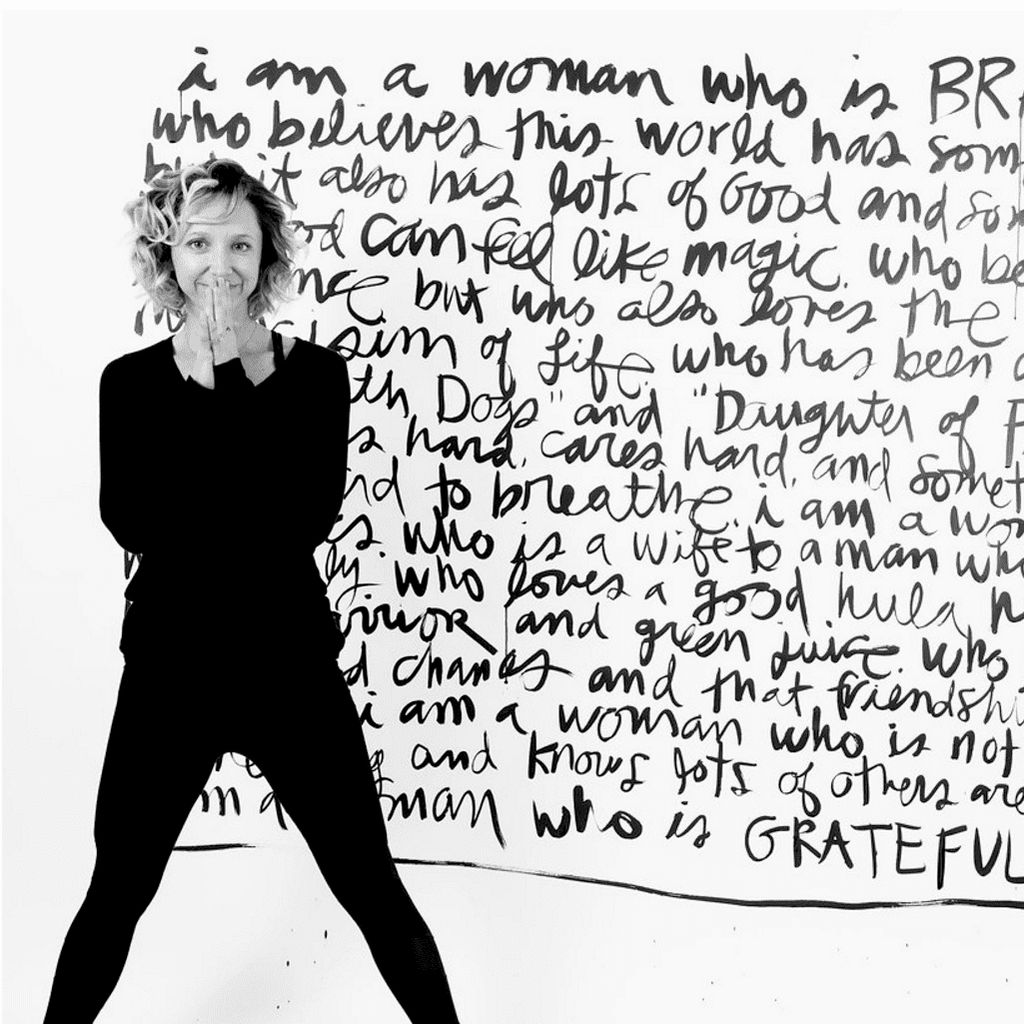 i am a woman who is BRA
who believes this world has som
but it also has lots of Good and so
od can feel like magic. who be
nce but who also loves the
sim of life. who has been a
th Dogs" and "Daughter of F
s hard, cares hard, and somet
d to breathe. i am a wom
s. who is a wife to a man who
ly. who loves a good hula h
rrior and green juice. who
d chances and that friendshi
i am a woman who is not
g and knows lots of others are
m a woman who is GRATEFUL